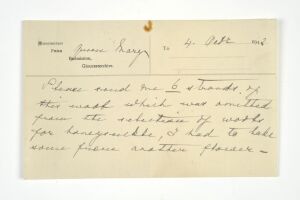 Memorandum
From Queen Mary
Badminton,
Gloucestershire.
To
4. Oct 194
Please send me 6 strands of
this wool which was omitted
from the selection of wools
for honeysuckle, I had to take
some from another flower —